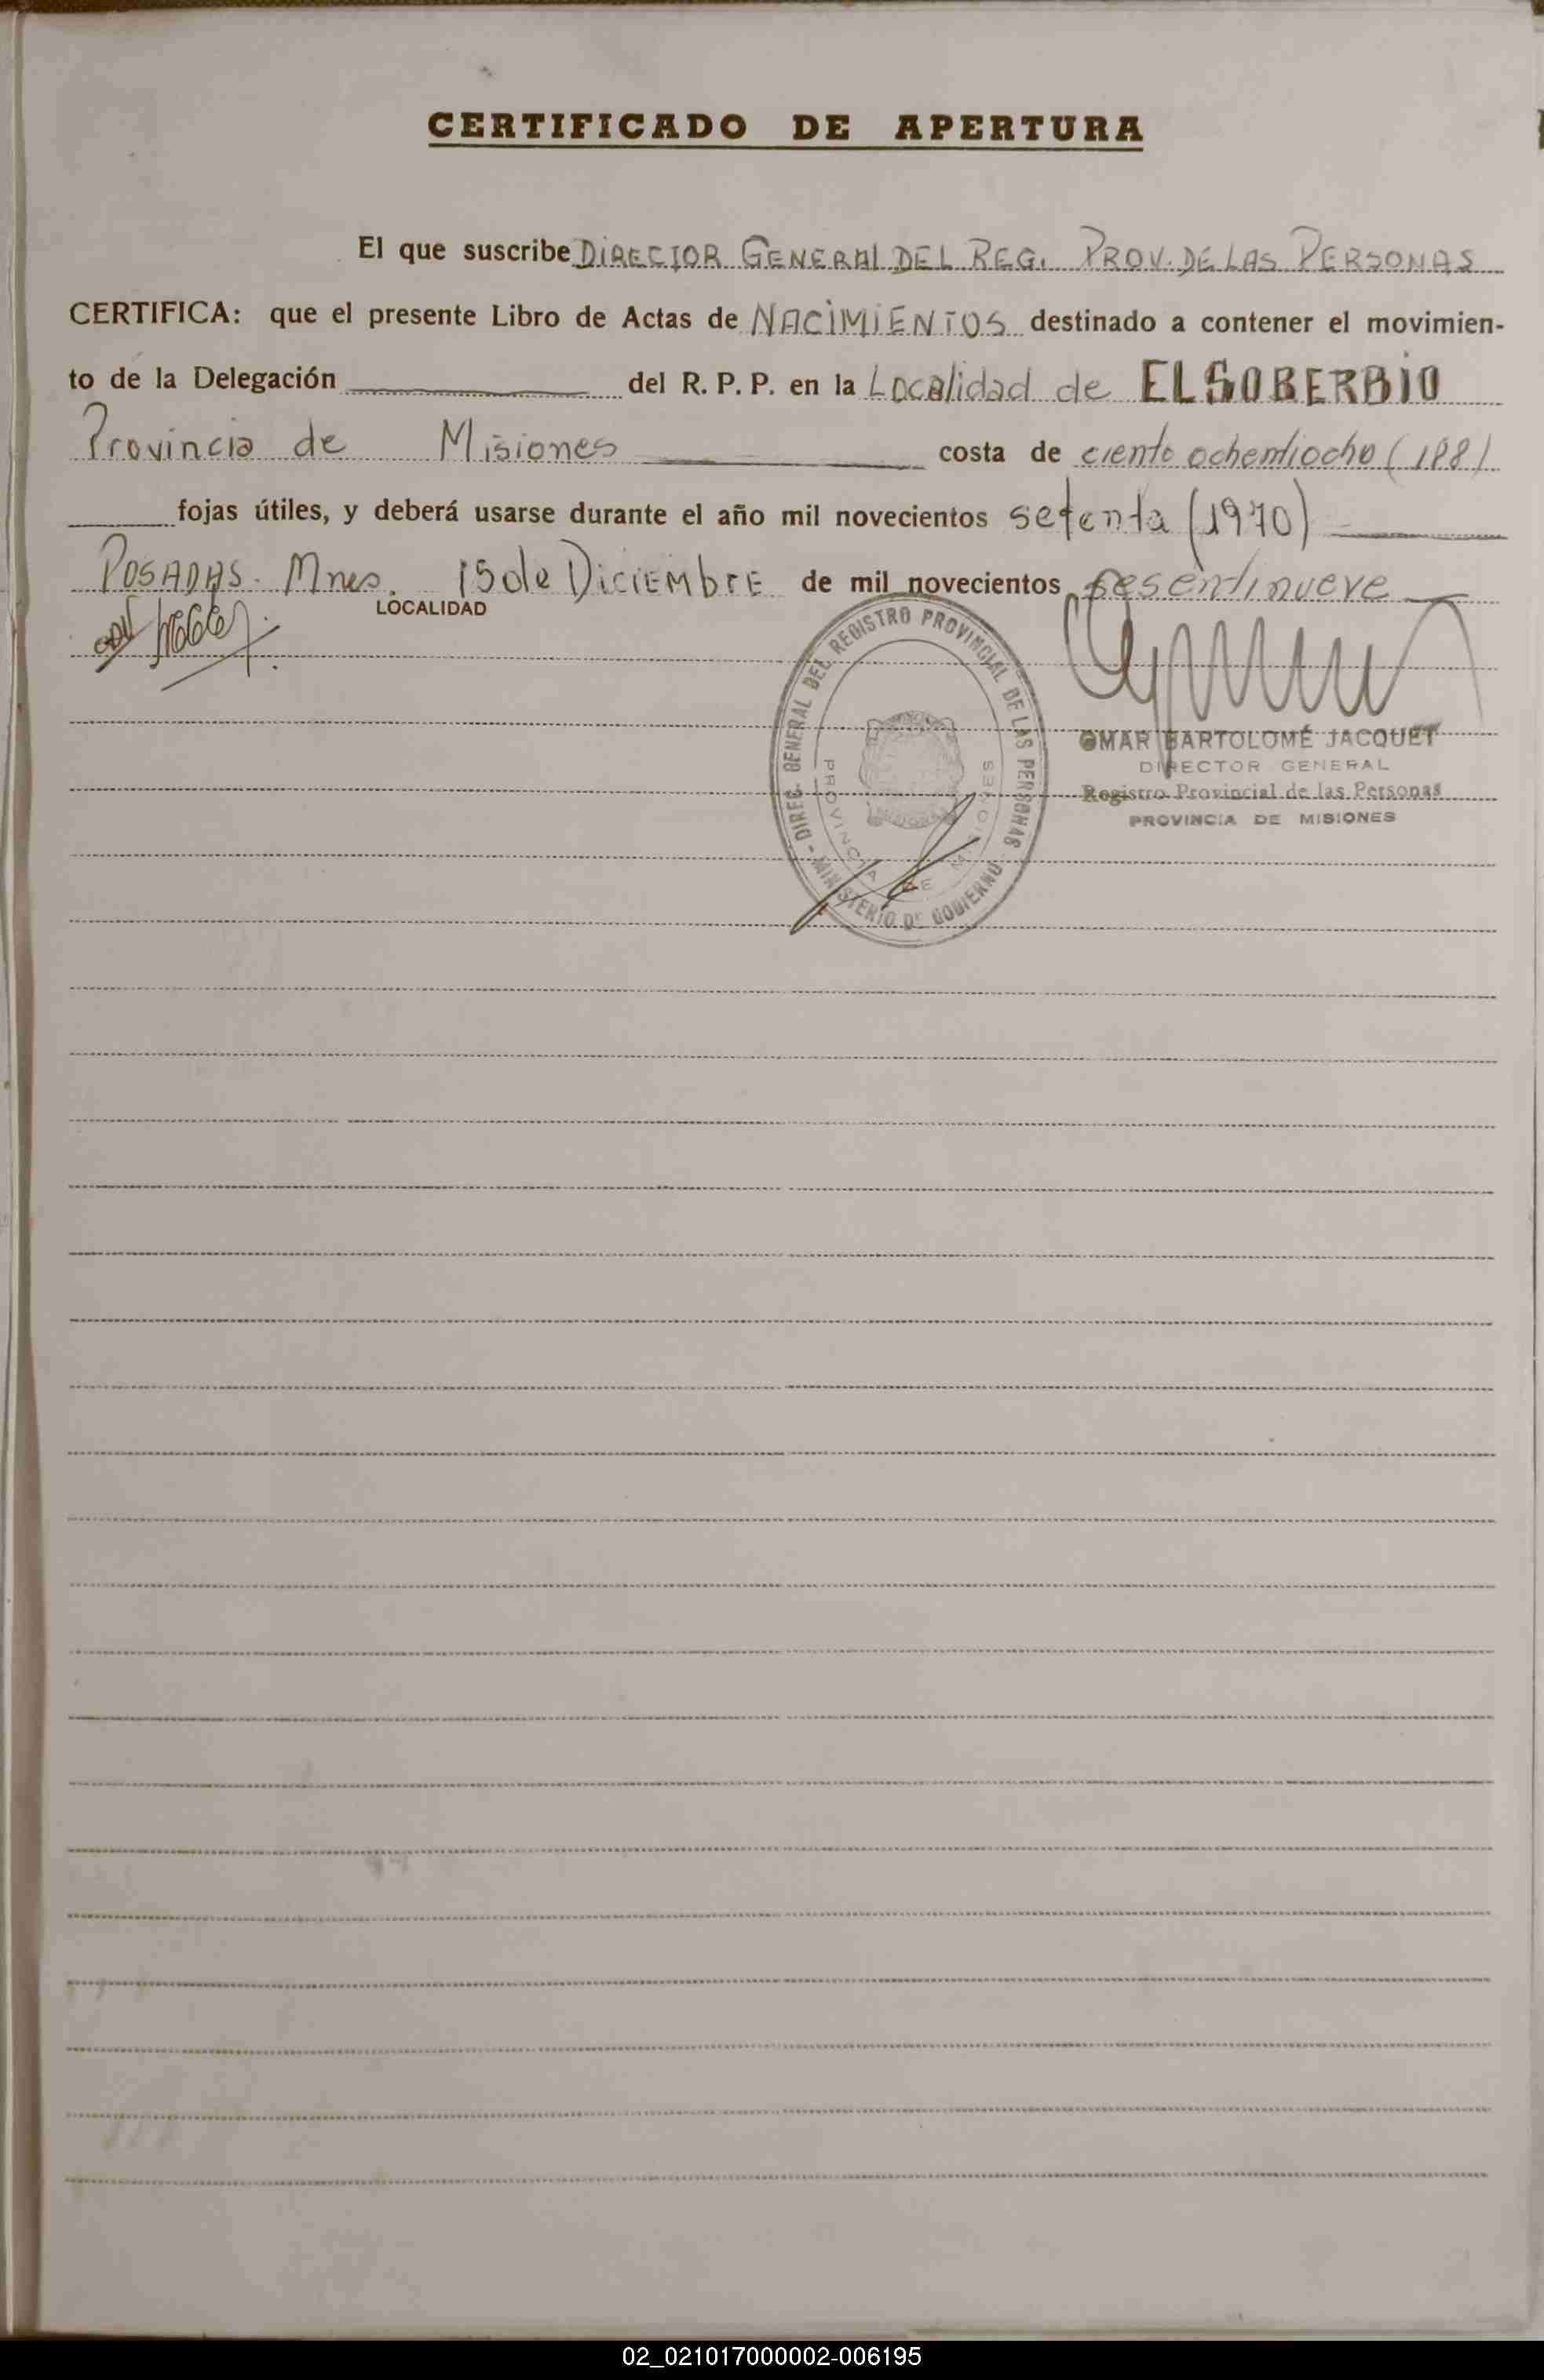 CERTIFICADO DE APERTURA
El que suscribe DIRECTOR GENERAL DEL REG. PROV. DE LAS PERSONAS
CERTIFICA: que el presente Libro de Actas de NACIMIENTOS destinado a contener el movimien-
to de la Delegación del R. P. P. en la Localidad de EL SOBERBIO
Provincia de Misiones costa de ciento ochentiocho (188)
fojas útiles, y deberá usarse durante el año mil novecientos setenta (1970)
POSADAS. Mnes. 15 de DICIEMbrE de mil novecientos sesentinueve
LOCALIDAD
DIREC. GENERAL DEL REGISTRO PROVINCIAL DE LAS PERSONAS - MINISTERIO DE GOBIERNO
PROVINCIA DE MISIONES
OMAR BARTOLOMÉ JACQUET
DIRECTOR GENERAL
Registro Provincial de las Personas
PROVINCIA DE MISIONES
02_021017000002-006195